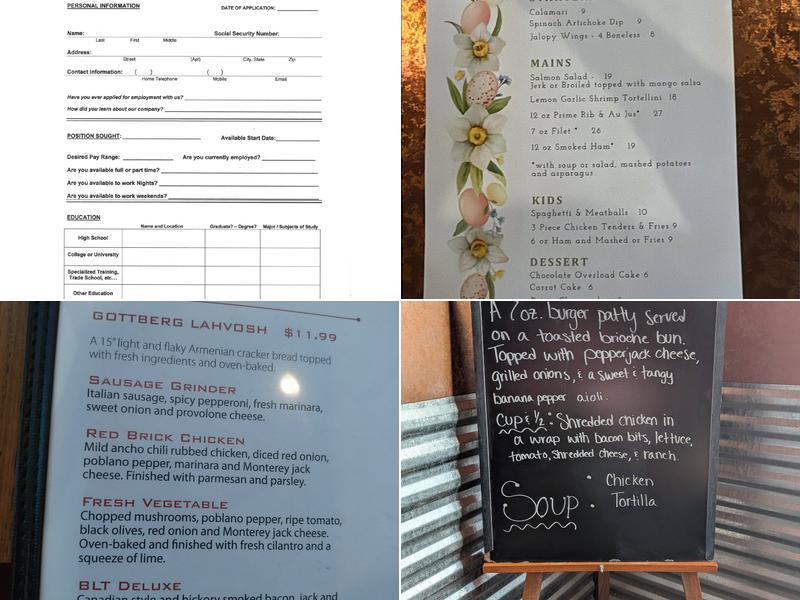 PERSONAL INFORMATION
DATE OF APPLICATION:
Name:
Social Security Number:
Last First Middle
Address:
Street (Apt) City, State Zip
Contact Information: ( ) ( )
Home Telephone Mobile Email
Have you ever applied for employment with us?
How did you learn about our company?
POSITION SOUGHT: Available Start Date:
Desired Pay Range: Are you currently employed?
Are you available full or part time?
Are you available to work Nights?
Are you available to work weekends?
EDUCATION
Name and Location Graduate? – Degree? Major / Subjects of Study
High School
College or University
Specialized Training,
Trade School, etc...
Other Education
Calamari 9
Spinach Artichoke Dip 9
Jalopy Wings - 4 Boneless 8
MAINS
Salmon Salad - 19
Jerk or Broiled topped with mango salsa
Lemon Garlic Shrimp Tortellini 18
12 oz Prime Rib & Au Jus* 27
7 oz Filet * 26
12 oz Smoked Ham* 19
*with soup or salad, mashed potatoes
and asparagus
KIDS
Spaghetti & Meatballs 10
3 Piece Chicken Tenders & Fries 9
6 oz Ham and Mashed or Fries 9
DESSERT
Chocolate Overload Cake 6
Carrot Cake 6
GOTTBERG LAHVOSH $11.99
A 15" light and flaky Armenian cracker bread topped
with fresh ingredients and oven-baked.
SAUSAGE GRINDER
Italian sausage, spicy pepperoni, fresh marinara,
sweet onion and provolone cheese.
RED BRICK CHICKEN
Mild ancho chili rubbed chicken, diced red onion,
poblano pepper, marinara and Monterey jack
cheese. Finished with parmesan and parsley.
FRESH VEGETABLE
Chopped mushrooms, poblano pepper, ripe tomato,
black olives, red onion and Monterey jack cheese.
Oven-baked and finished with fresh cilantro and a
squeeze of lime.
BLT DELUXE
Canadian style and hickory smoked bacon, jack and
A 7oz. burger patty served
on a toasted brioche bun.
Topped with pepperjack cheese,
grilled onions, & a sweet & tangy
banana pepper aioli.
Cup & 1/2: Shredded chicken in
a wrap with bacon bits, lettuce,
tomato, shredded cheese, & ranch.
Soup • Chicken
• Tortilla